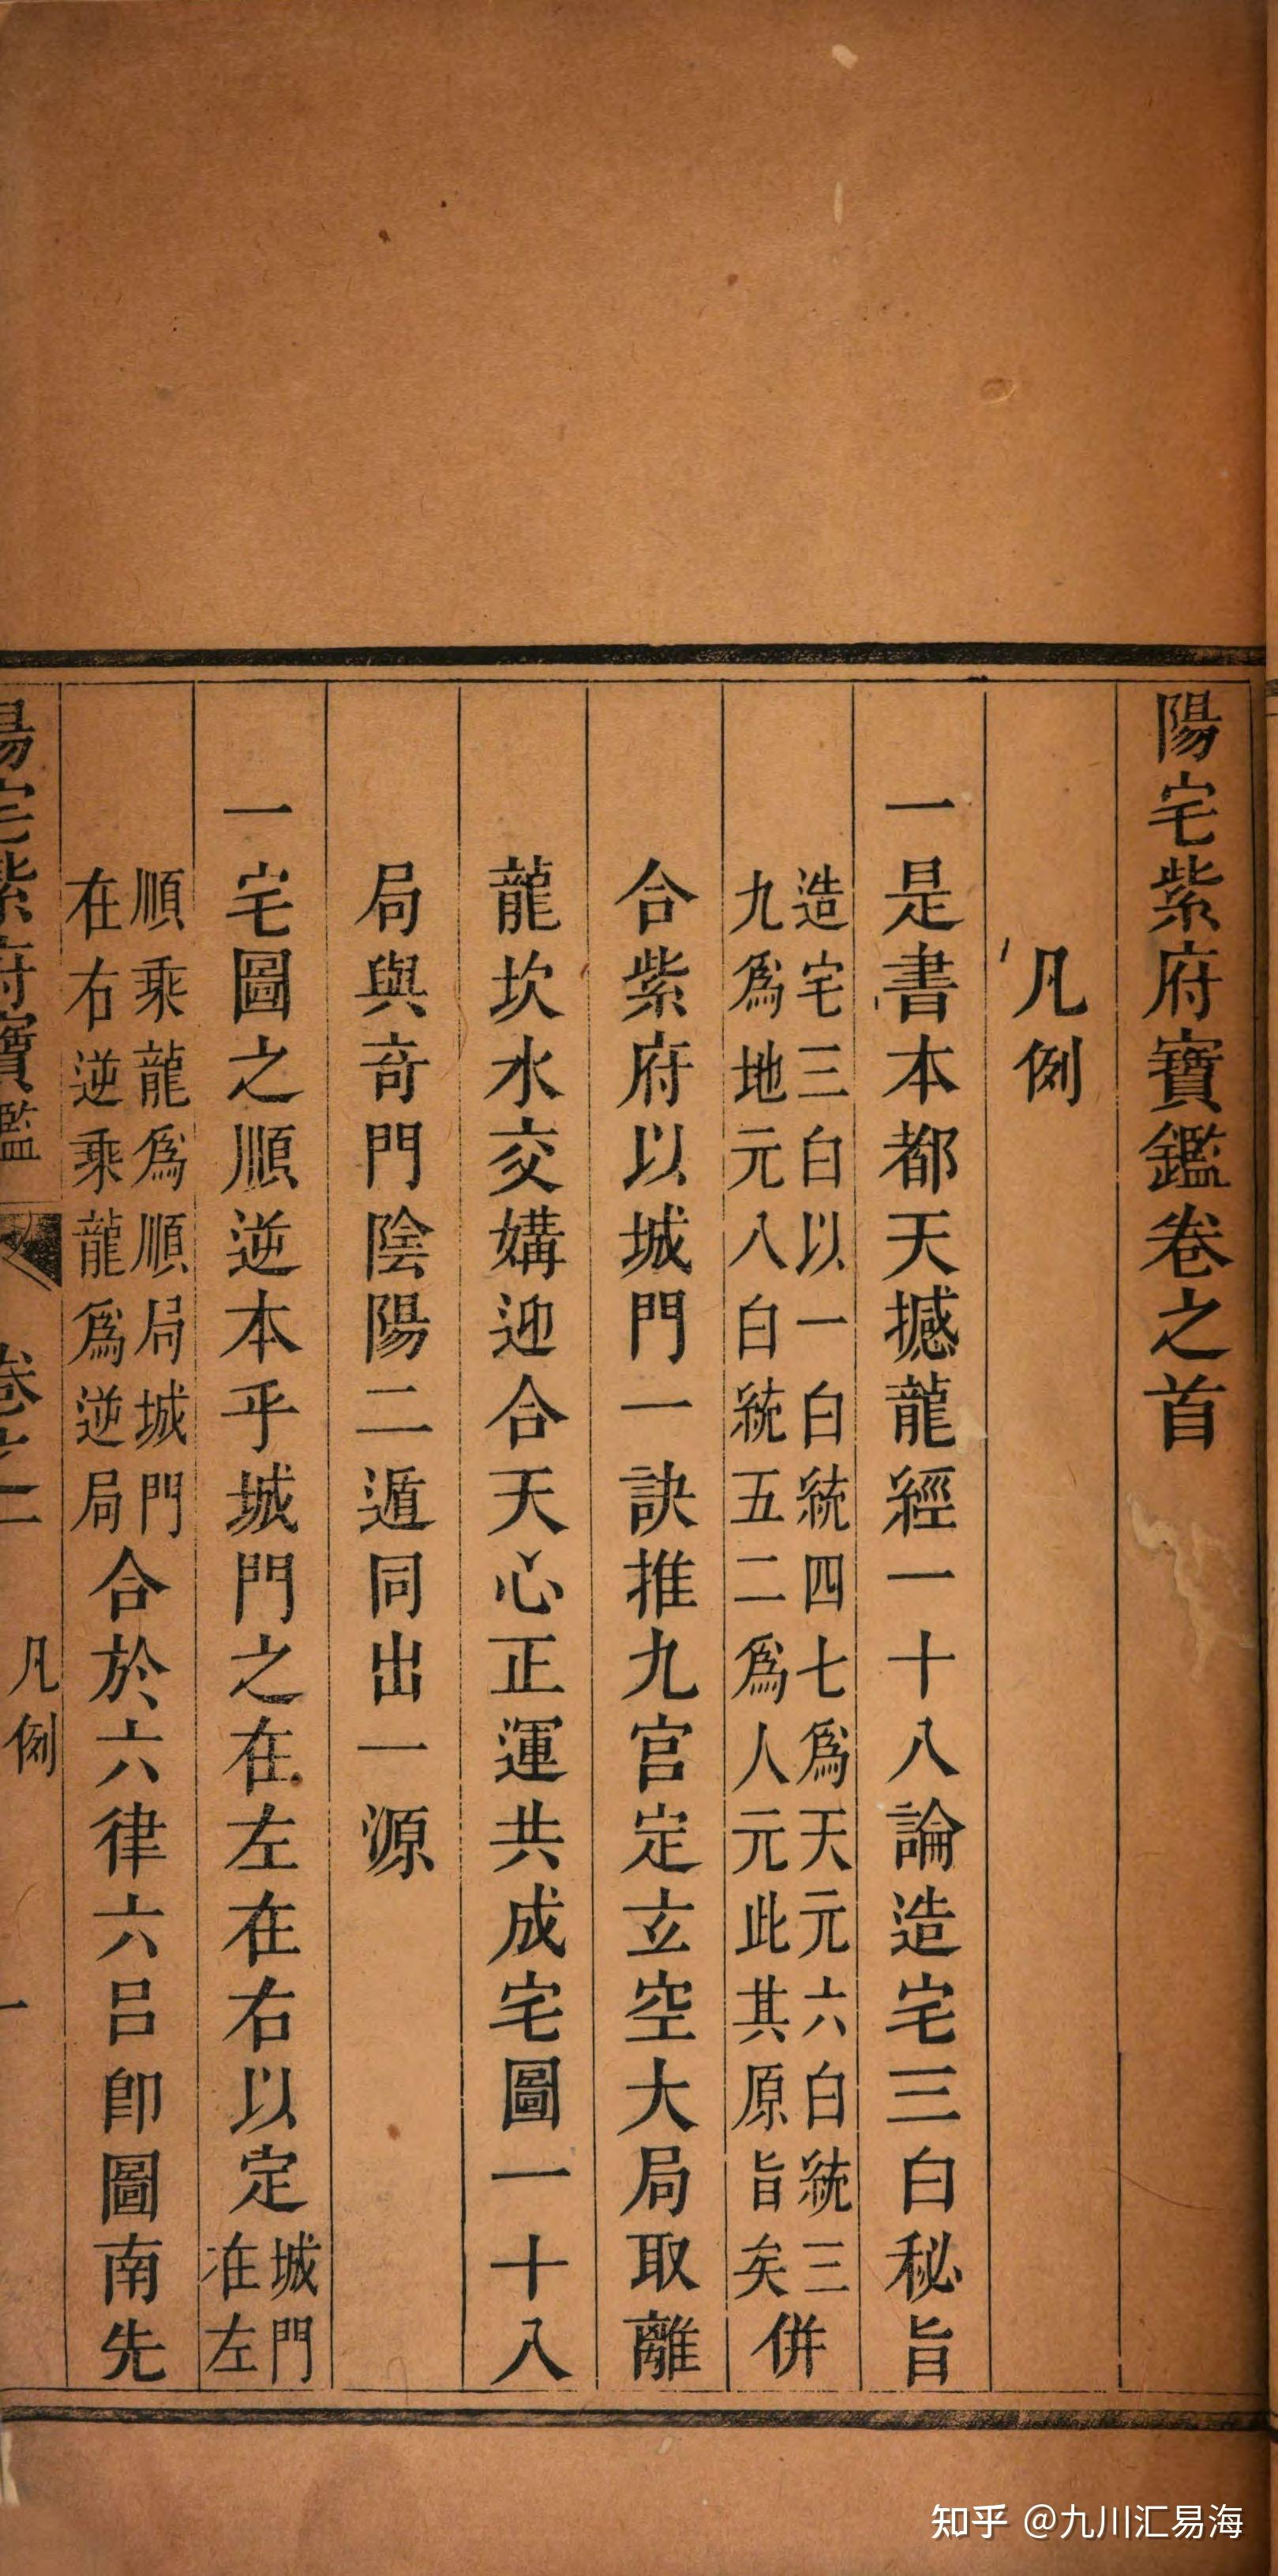 陽宅紫府寶鑑卷之首
凡例
一是書本都天撼龍經一十八論造宅三白秘旨
造宅三白以一白統四七爲天元六白統三
九爲地元八白統五二爲人元此其原旨矣
併
合紫府以城門一訣推九宮定立空大局取離
龍坎水交媾迎合天心正運共成宅圖一十八
局與奇門陰陽二遁同出一源
一宅圖之順逆本乎城門之在左在右以定
城門
在左
順乘龍爲順局城門
在右逆乘龍爲逆局
合於六律六呂卽圖南先
陽宅紫府寶鑑 卷之 凡例 一
知乎 @九川汇易海